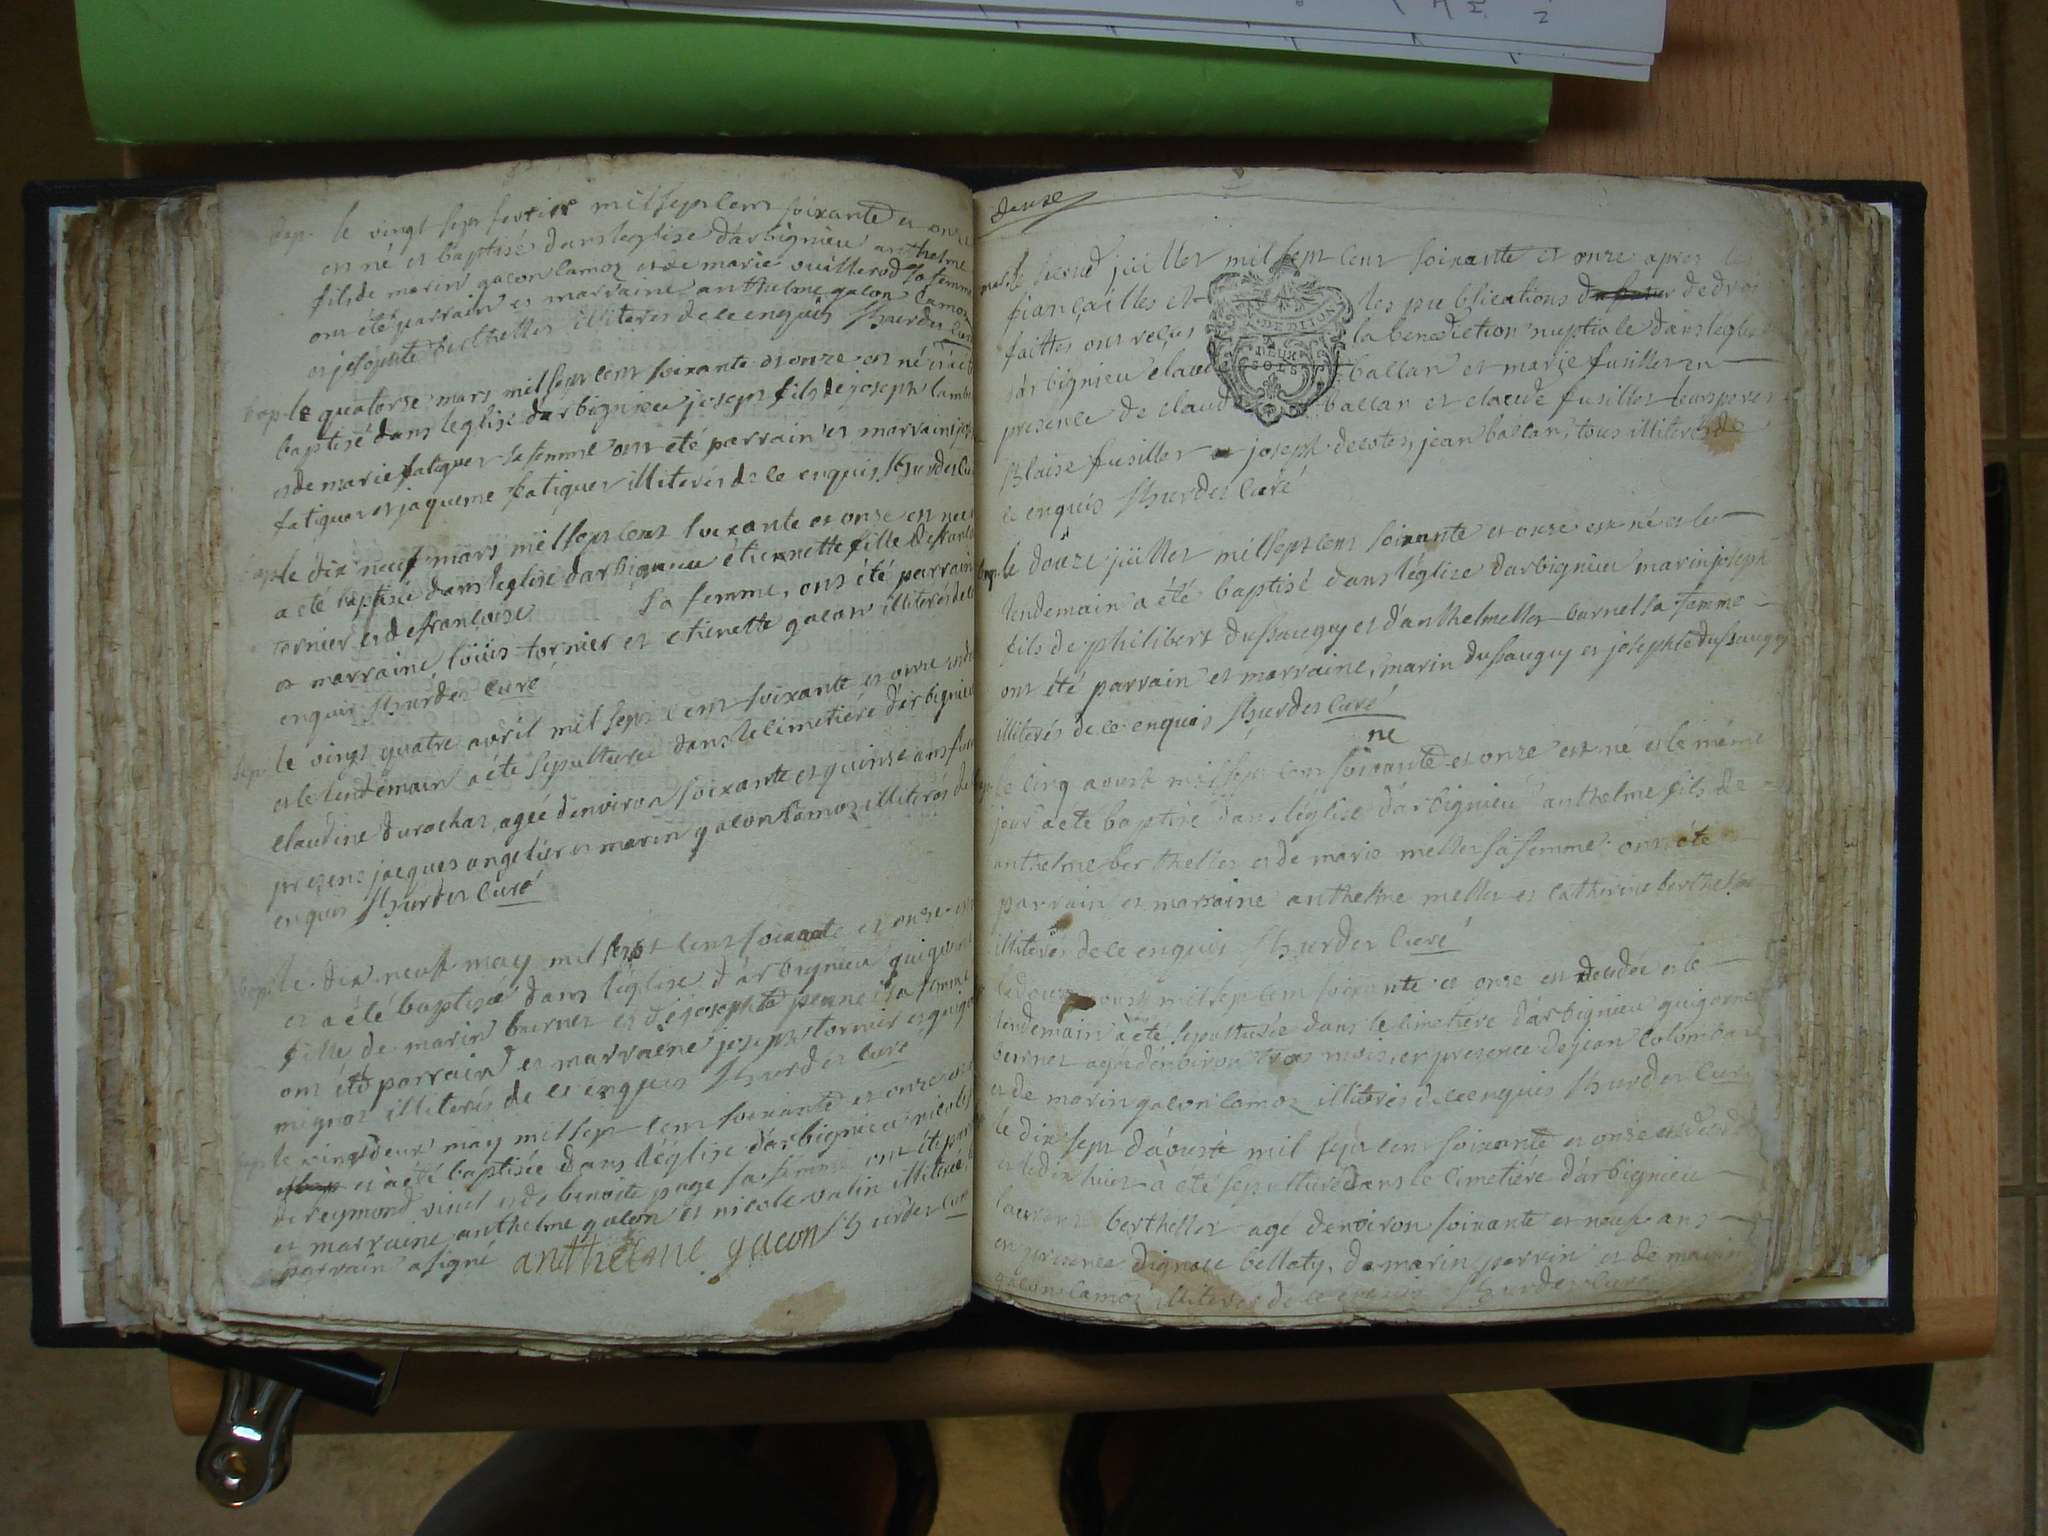 bap. le vingt sept fevrier mil sept cent soixante et onze
est né et baptisé dans leglise d'arbignieu anthelme
fils de marin gacon lamoz et de marie vuillerod sa femme
ont été parrain et marraine anthelme gacon lamoz
et josephte berthellet illiterés de ce enquis hurdet curé
bap. le quatorse mars mil sept cent soixante et onze est né et a été
baptisé dans leglise d'arbignieu josept fils de joseph
et de marie fatiguet sa femme ont été parrain et marraine
fatiguet et jaqueme fatiguet illiterés de ce enquis hurdet curé
bap. le dix neuf mars mil sept cent soixante et onse est née
a été baptisée dans leglise d'arbignieu étiennette fille de
tornier et de francoise sa femme, ont été parrain
et marraine loüis tornier et etienette gacon illiterés de ce
enquis hurdet curé
sep. le vingt quatre avril mil sept cent soixante et onze
et le lendemain a été sepulturée dans le cimetiére d'arbignieu
claudine durochat, agée d'environ soixante et quinse ans
present jacques angelier et marin gacon lamoz illiterés de ce
enquis hurdet curé
bap. le dix neuf may mil sept cent soixante et onze est
et a été baptisée dans l'église d'arbignieu
fille de marin burnet et de josephte sa femme
ont été parrain et marraine joseph tornier et
mignot illiterés de ce enquis hurdet curé
bap. le vingt deux may mil sept cent soixante et onze
et à été baptisée dans l'église d'arbignieu nicole
de reymond vinel et de benoite page sa femme ont été
et marraine anthelme gacon et nicole valin illiterée
parrain a signé anthelme gacon hurdet curé
deuxe
mar. le second juillet mil sept cent soixante et onze apres les
fiançailles et les publications de droit
faittes ont reçus la benediction nuptiale dans leglise
d'arbignieu claude ballan et marie fusillet en
presence de claude ballan et claude fusillet leurs peres
blaise fusillet joseph decotes, jean ballan, tous illiterés de
ce enquis hurdet curé
bap. le douze juillet mil sept cent soixante et onse est né et le
lendemain a été baptisé dans l'église d'arbignieu marin joseph
fils de philibert dussauguy et d'anthelmette burnet sa femme
ont été parrain et marraine, marin dussauguy et josephte dussauguy
illiterés de ce enquis hurdet curé
ne
le cinq aoust mil sept cent soixante et onze est né et le méme
jour a été baptisé dans l'église d'arbignieu anthelme fils de
anthelme berthellet et de marie mellet sa femme ont été
parrain et marraine anthelme mellet et catherine berthellet
illiterés de ce enquis hurdet curé
le douze aoust mil sept cent soixante et onse est decedée et le
lendemain a été sepulturée dans le cimetiere d'arbignieu
burnet agée d'environ trois mois, en presence de jean colomban
et de marin gacon lamoz illiterés de ce enquis hurdet curé
le dix sept d'aoust mil sept cent soixante et onse est decedé
et le dix huit à été sepulturé dans le cimetiére d'arbignieu
laurent berthellet agé d'environ soixante et neuf ans
en presence d'ignace bellaty, de marin perrin et de marin
gacon lamoz illiterés de ce enquis hurdet curé
DE DIJON
DEUX
SOLS